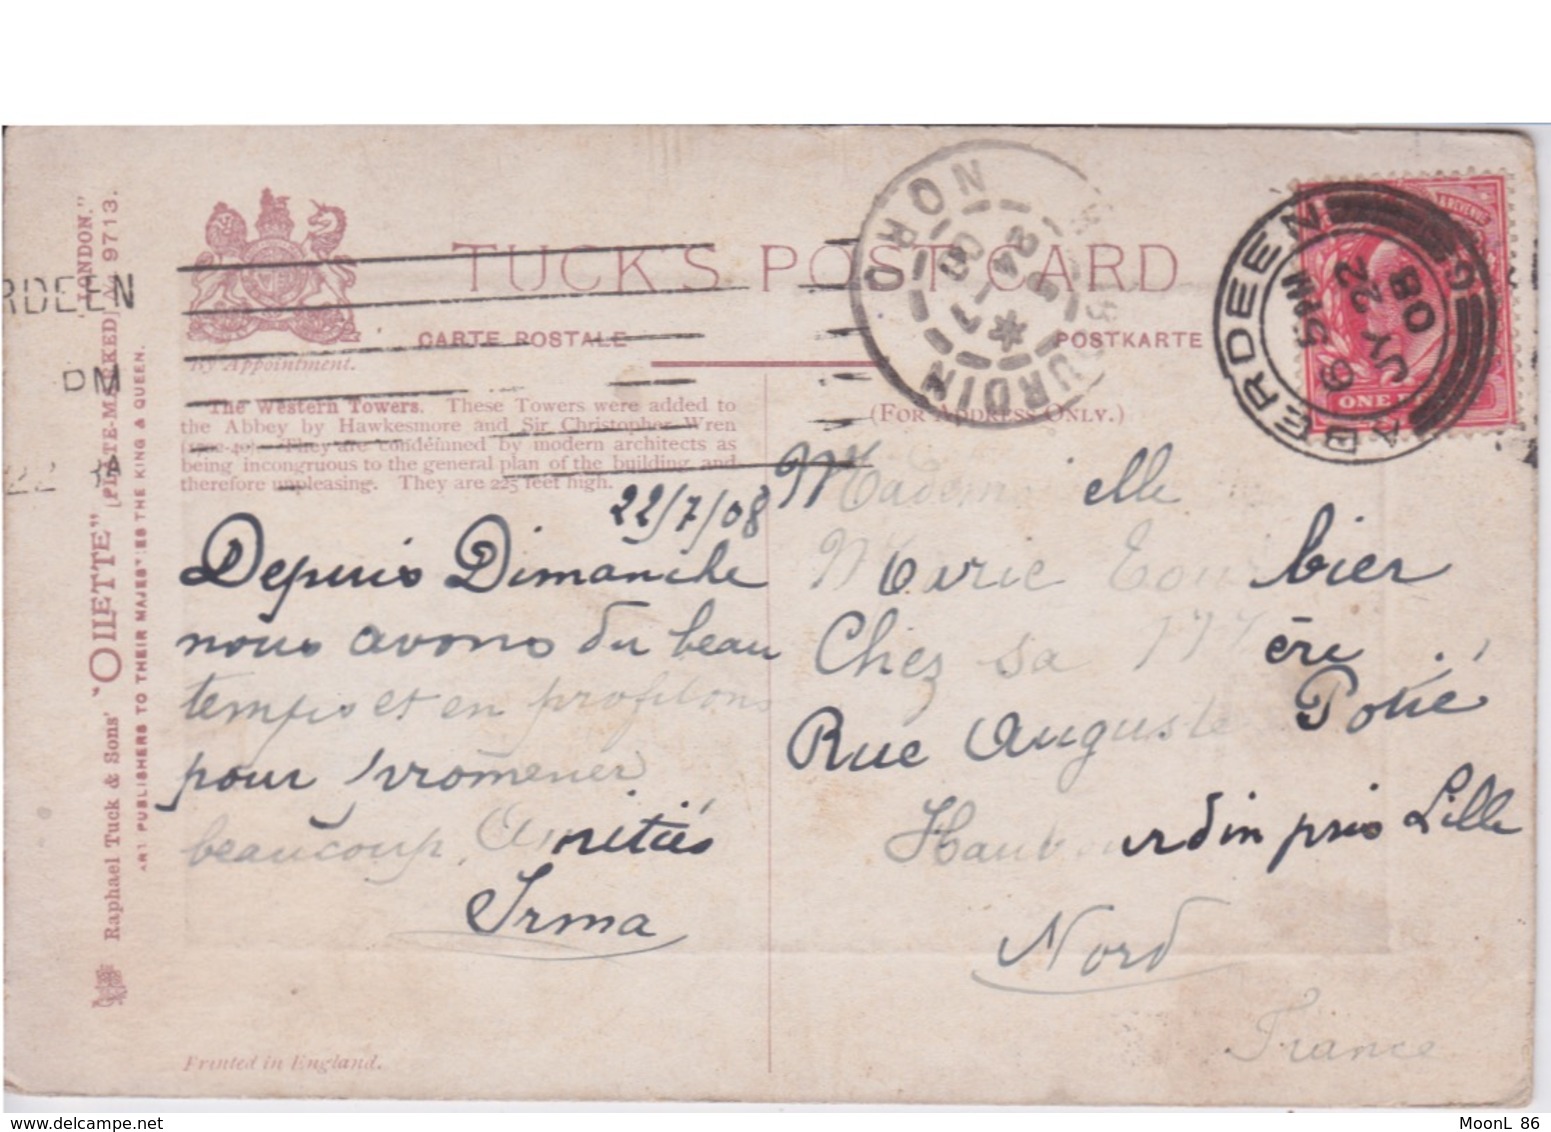 TUCK'S POST CARD
CARTE POSTALE
POSTKARTE
By Appointment.
(FOR ADDRESS ONLY.)
The Western Towers. These Towers were added to
the Abbey by Hawkesmore and Sir Christopher Wren
They are condemned by modern architects as
being incongruous to the general plan of the building, and
therefore unpleasing. They are 225 feet high.
22/7/08
Depuis Dimanche
nous avons du beau
temps et en profitons
pour promener
beaucoup. Amitiés
Irma
Mademoiselle
Marie
Chez sa mère
Rue Auguste Potié
Haubourdin près Lille
Nord
France
Printed in England.
Raphael Tuck & Sons' "OILETTE" [PLATE-MARKED] 9713. "LONDON."
ART PUBLISHERS TO THEIR MAJESTIES THE KING & QUEEN.
RDEEN
PM
22
ABERDEEN
6 15 PM
JY 22
08
NORD
URDIN
24
7
ONE
MoonL 86